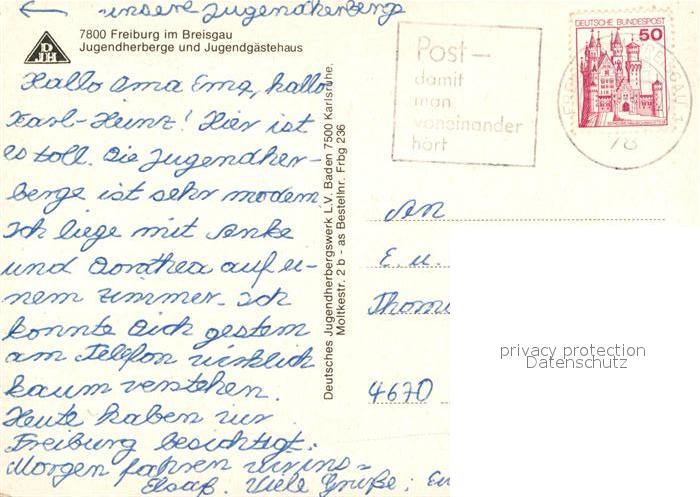 ← unsere Jugendherberge
DJH
7800 Freiburg im Breisgau
Jugendherberge und Jugendgästehaus
Hallo Oma Erna, hallo
Karl-Heinz! Hier ist
es toll. Die Jugendher-
berge ist sehr modern.
Ich liege mit Anke
und Dorothea auf ei-
nem Zimmer. Ich
konnte Dich gestern
am Telefon wirklich
kaum verstehen.
Heute haben wir
Freiburg besichtigt.
Morgen fahren wir ins
Elsaß. Viele Grüße:
Deutsches Jugendherbergswerk L.V. Baden 7500 Karlsruhe,
Moltkestr. 2 b - as Bestellnr. Frbg 236
Post-
damit
man
voneinander
hört
DEUTSCHE BUNDESPOST
50
78
An
E. u.
4670
privacy protection
Datenschutz